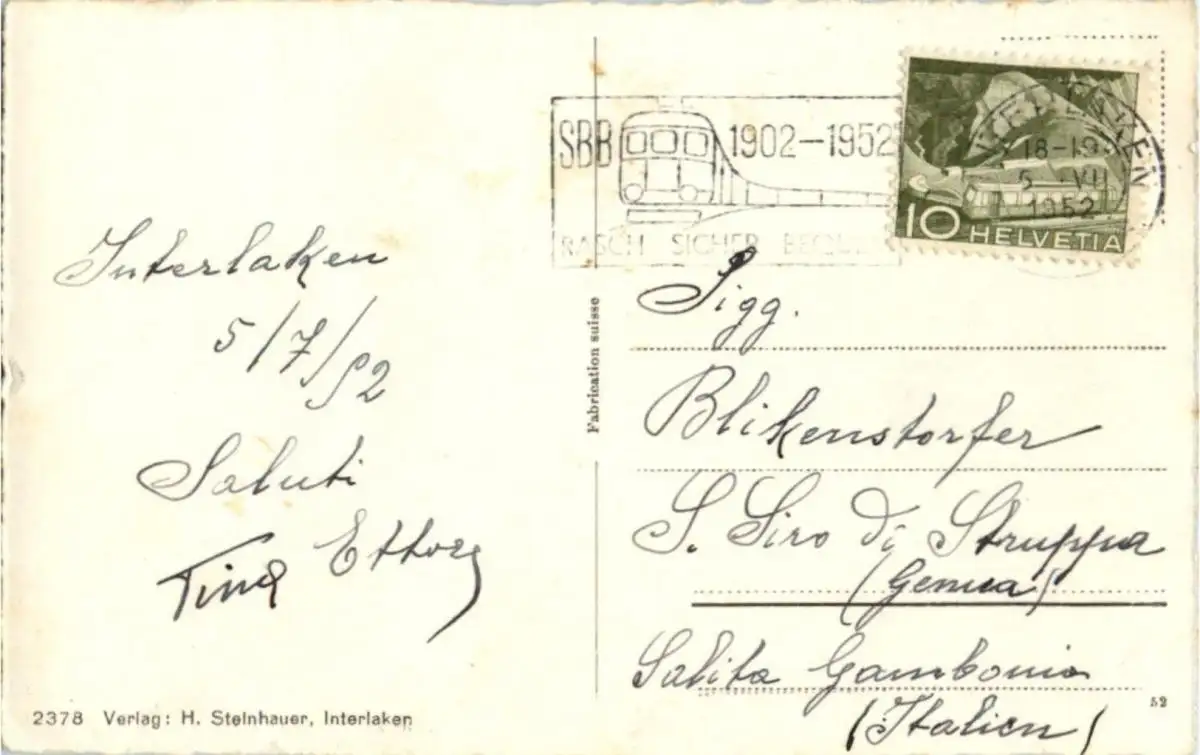 Interlaken
5/7/52
Saluti
Tina Ettore
2378 Verlag: H. Steinhauer, Interlaken
Fabrication suisse
SBB 1902-1952
RASCH SICHER BEQUEM
INTERLAKEN
18-19
5. VII
1952
10 HELVETIA
Sigg.
Blikenstorfer
S. Siro di Struppa
(Genua)
Salita Gambonia
(Italien)
52